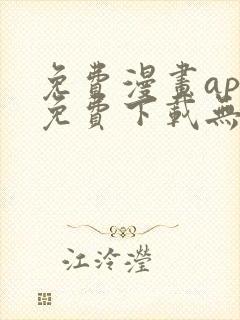 免費漫畫ap
免費下載無
江泠瀅